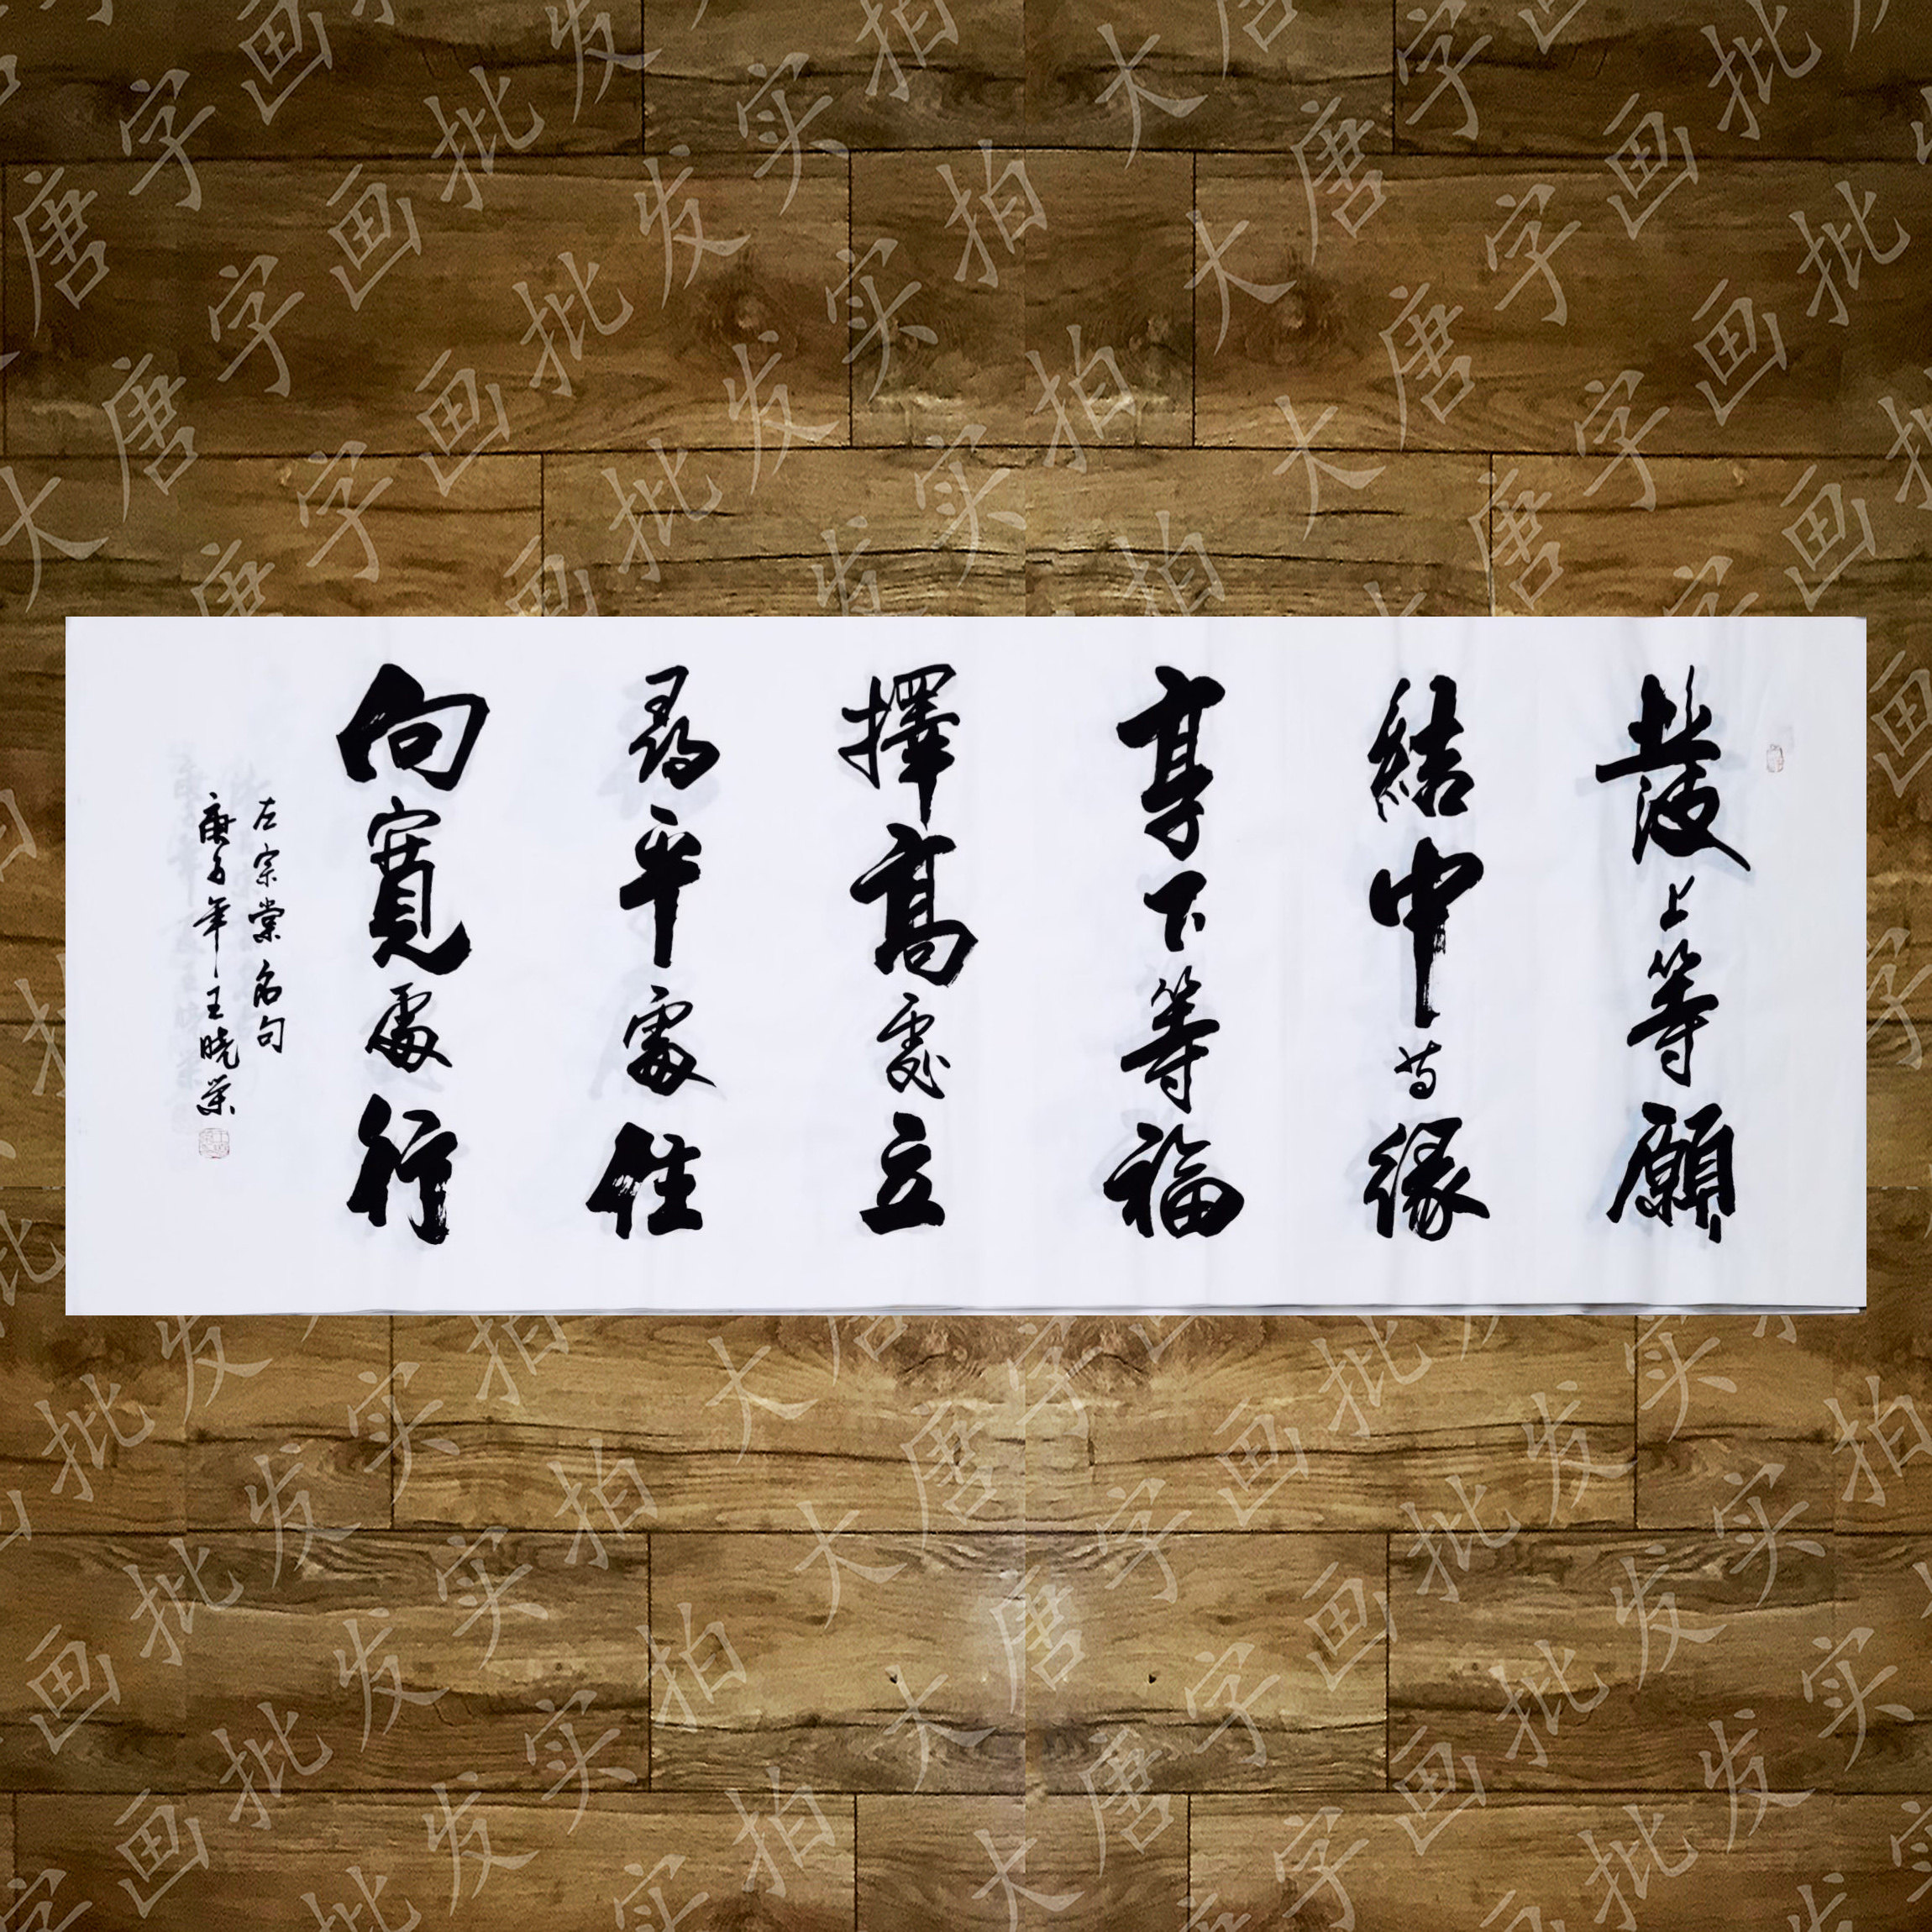 發上等願
結中等緣
享下等福
擇高處立
尋平處住
向寬處行
左宗棠名句
庚子年王晓荣
大唐字画批发实拍